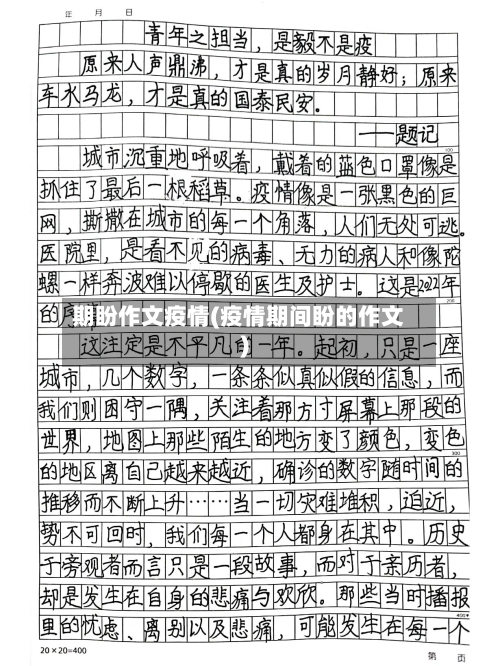 年 月 日
青年之担当，是毅不是疫
原来人声鼎沸，才是真的岁月静好；原来
车水马龙，才是真的国泰民安。
——题记
100
城市沉重地呼吸着，戴着的蓝色口罩像是
抓住了最后一根稻草。疫情像是一张黑色的巨
网，撕撒在城市的每一个角落，人们无处可逃。
医院里，是看不见的病毒、无力的病人和像陀
螺一样奔波难以停歇的医生及护士。这是2022年
200
的序
期盼作文疫情(疫情期间盼的作文
)
这注定是不平凡的一年。起初，只是一座
城市，几个数字，一条条似真似假的信息，而
我们则困守一隅，关注着那方寸屏幕上那段的
世界，地图上那些陌生的地方变了颜色，变色
300
的地区离自己越来越近，确诊的数字随时间的
推移而不断上升……当一切灾难堆积，迫近，
势不可回时，我们每一个人都身在其中。历史
于旁观者而言只是一段故事，而对于亲历者，
却是发生在自身的悲痛与欢欣。那些当时播报
400
里的忧虑、离别以及悲痛，可能发生在每一个
20×20=400
第 页